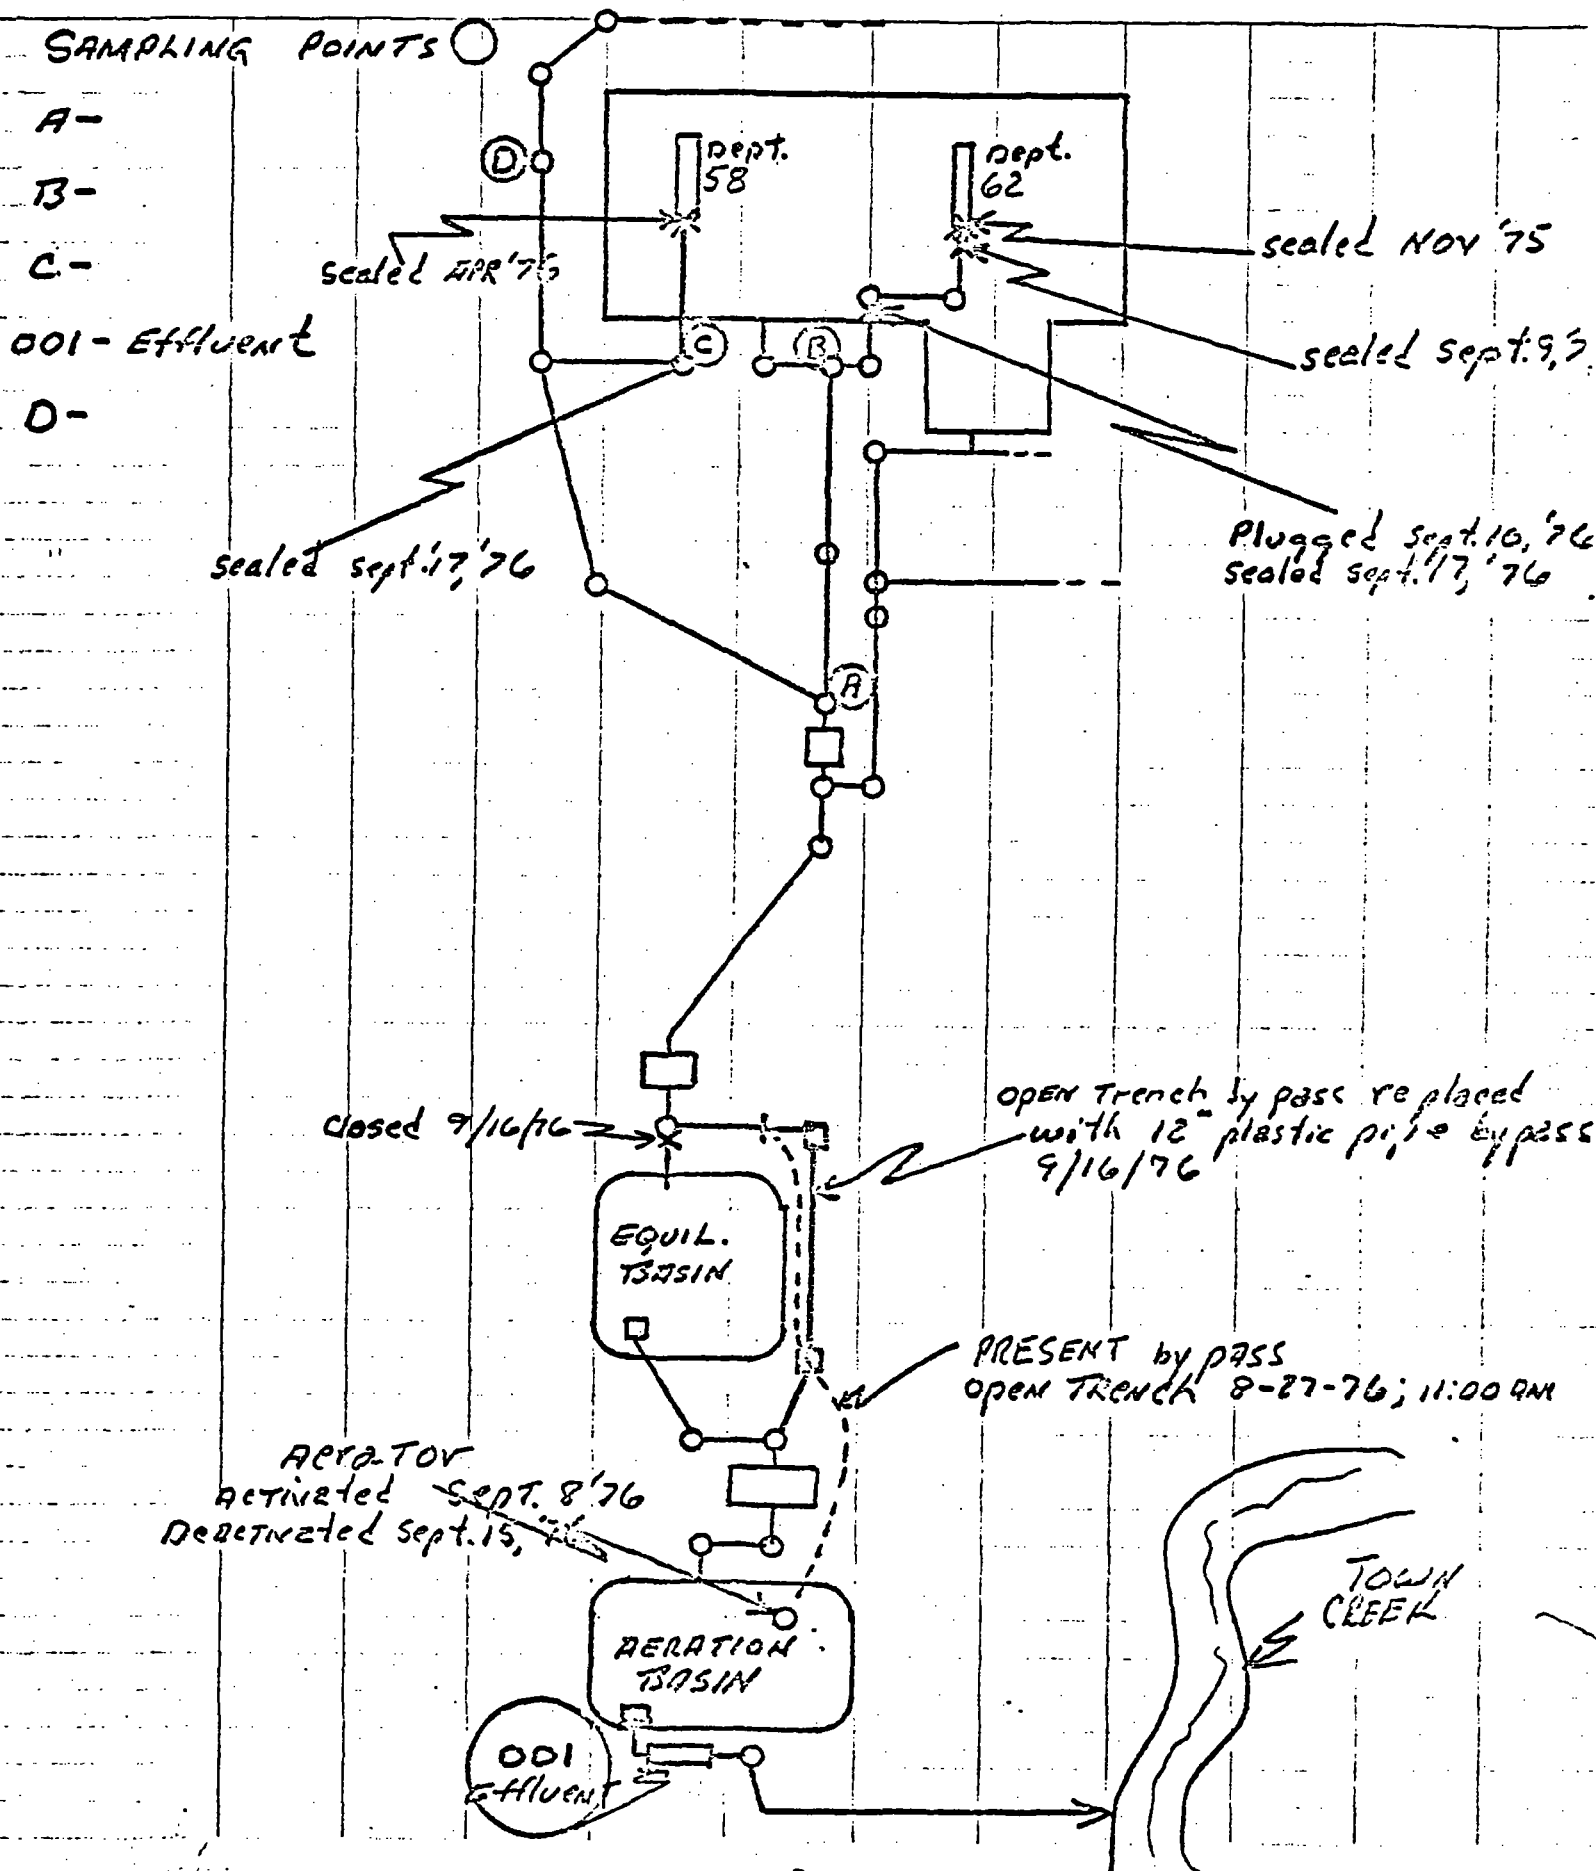 SAMPLING POINTS
A-
B-
C-
001- Effluent
D-
D
Dept.
58
Dept.
62
sealed APR '76
sealed NOV '75
sealed Sept. 9, 7
C
B
sealed Sept. 17, '76
Plugged Sept. 10, '76
sealed Sept. 17, '76
A
closed 9/16/76
OPEN Trench by pass replaced
with 12" plastic pipe bypass
9/16/76
EQUIL.
BASIN
PRESENT by pass
OPEN TRENCH 8-27-76; 11:00 AM
AeraTor
Activated Sept. 8 '76
Deactivated Sept. 15, '76
TOWN
CREEK
AERATION
BASIN
001
Effluent